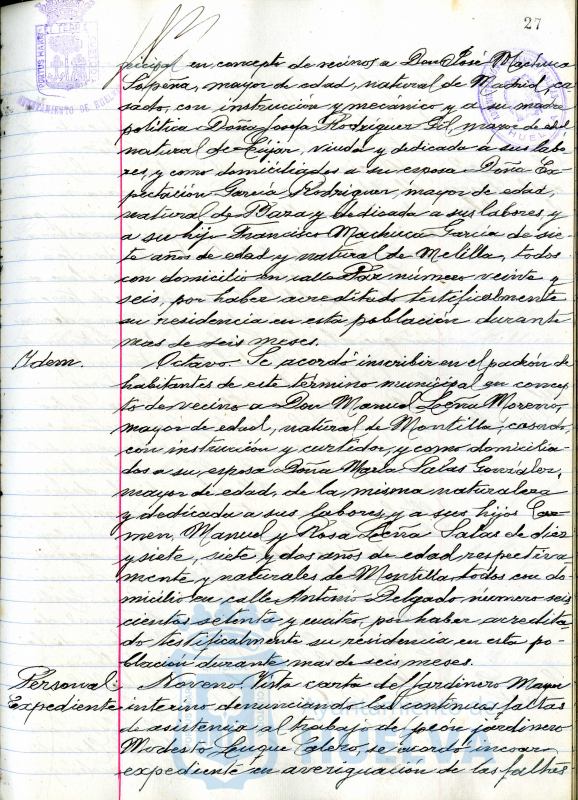 27
PORTUS MARIS
AYUNTAMIENTO DE HUELVA
HUELVA
nicipal en concepto de vecinos a Don José Machuca
Lapeña, mayor de edad, natural de Madrid, ca-
sado, con instrucción y mecánico y a su madre
política Doña Josefa Rodríguez Gil, mayor de edad
natural de Cújar, viuda y dedicada a sus labo-
res, y como domiciliados a su esposa Doña Ex-
pectación García Rodríguez, mayor de edad,
natural de Baza y dedicada a sus labores, y
a su hijo Francisco Machuca García de sie-
te años de edad y natural de Melilla, todos
con domicilio en calle Paz número veinte y
seis, por haber acreditado testificalmente
su residencia en esta población durante
mas de seis meses.
Idem. Octavo. Se acordó inscribir en el padrón de
habitantes de este término municipal en concep-
to de vecino a Don Manuel Leña Moreno,
mayor de edad, natural de Montilla, casado,
con instrucción y curtidor, y como domicilia-
dos a su esposa Doña María Salas González,
mayor de edad, de la misma naturaleza
y dedicada a sus labores, y a sus hijos Car-
men, Manuel y Rosa Leña Salas de diez
y siete, siete y dos años de edad respectiva-
mente, y naturales de Montilla, todos con do-
micilio en calle Antonio Delgado, número seis
cientos setenta y cuatro, por haber acredita-
do testificalmente su residencia en esta po-
blación durante mas de seis meses.
Personal: Noveno. Vista carta del Jardinero Mayor
Expediente interino denunciando las continuas faltas
de asistencia al trabajo del peón jardinero
Modesto Luque Calero, se acordó incoar
expediente en averiguación de las faltas
Ayuntamiento de
HUELVA